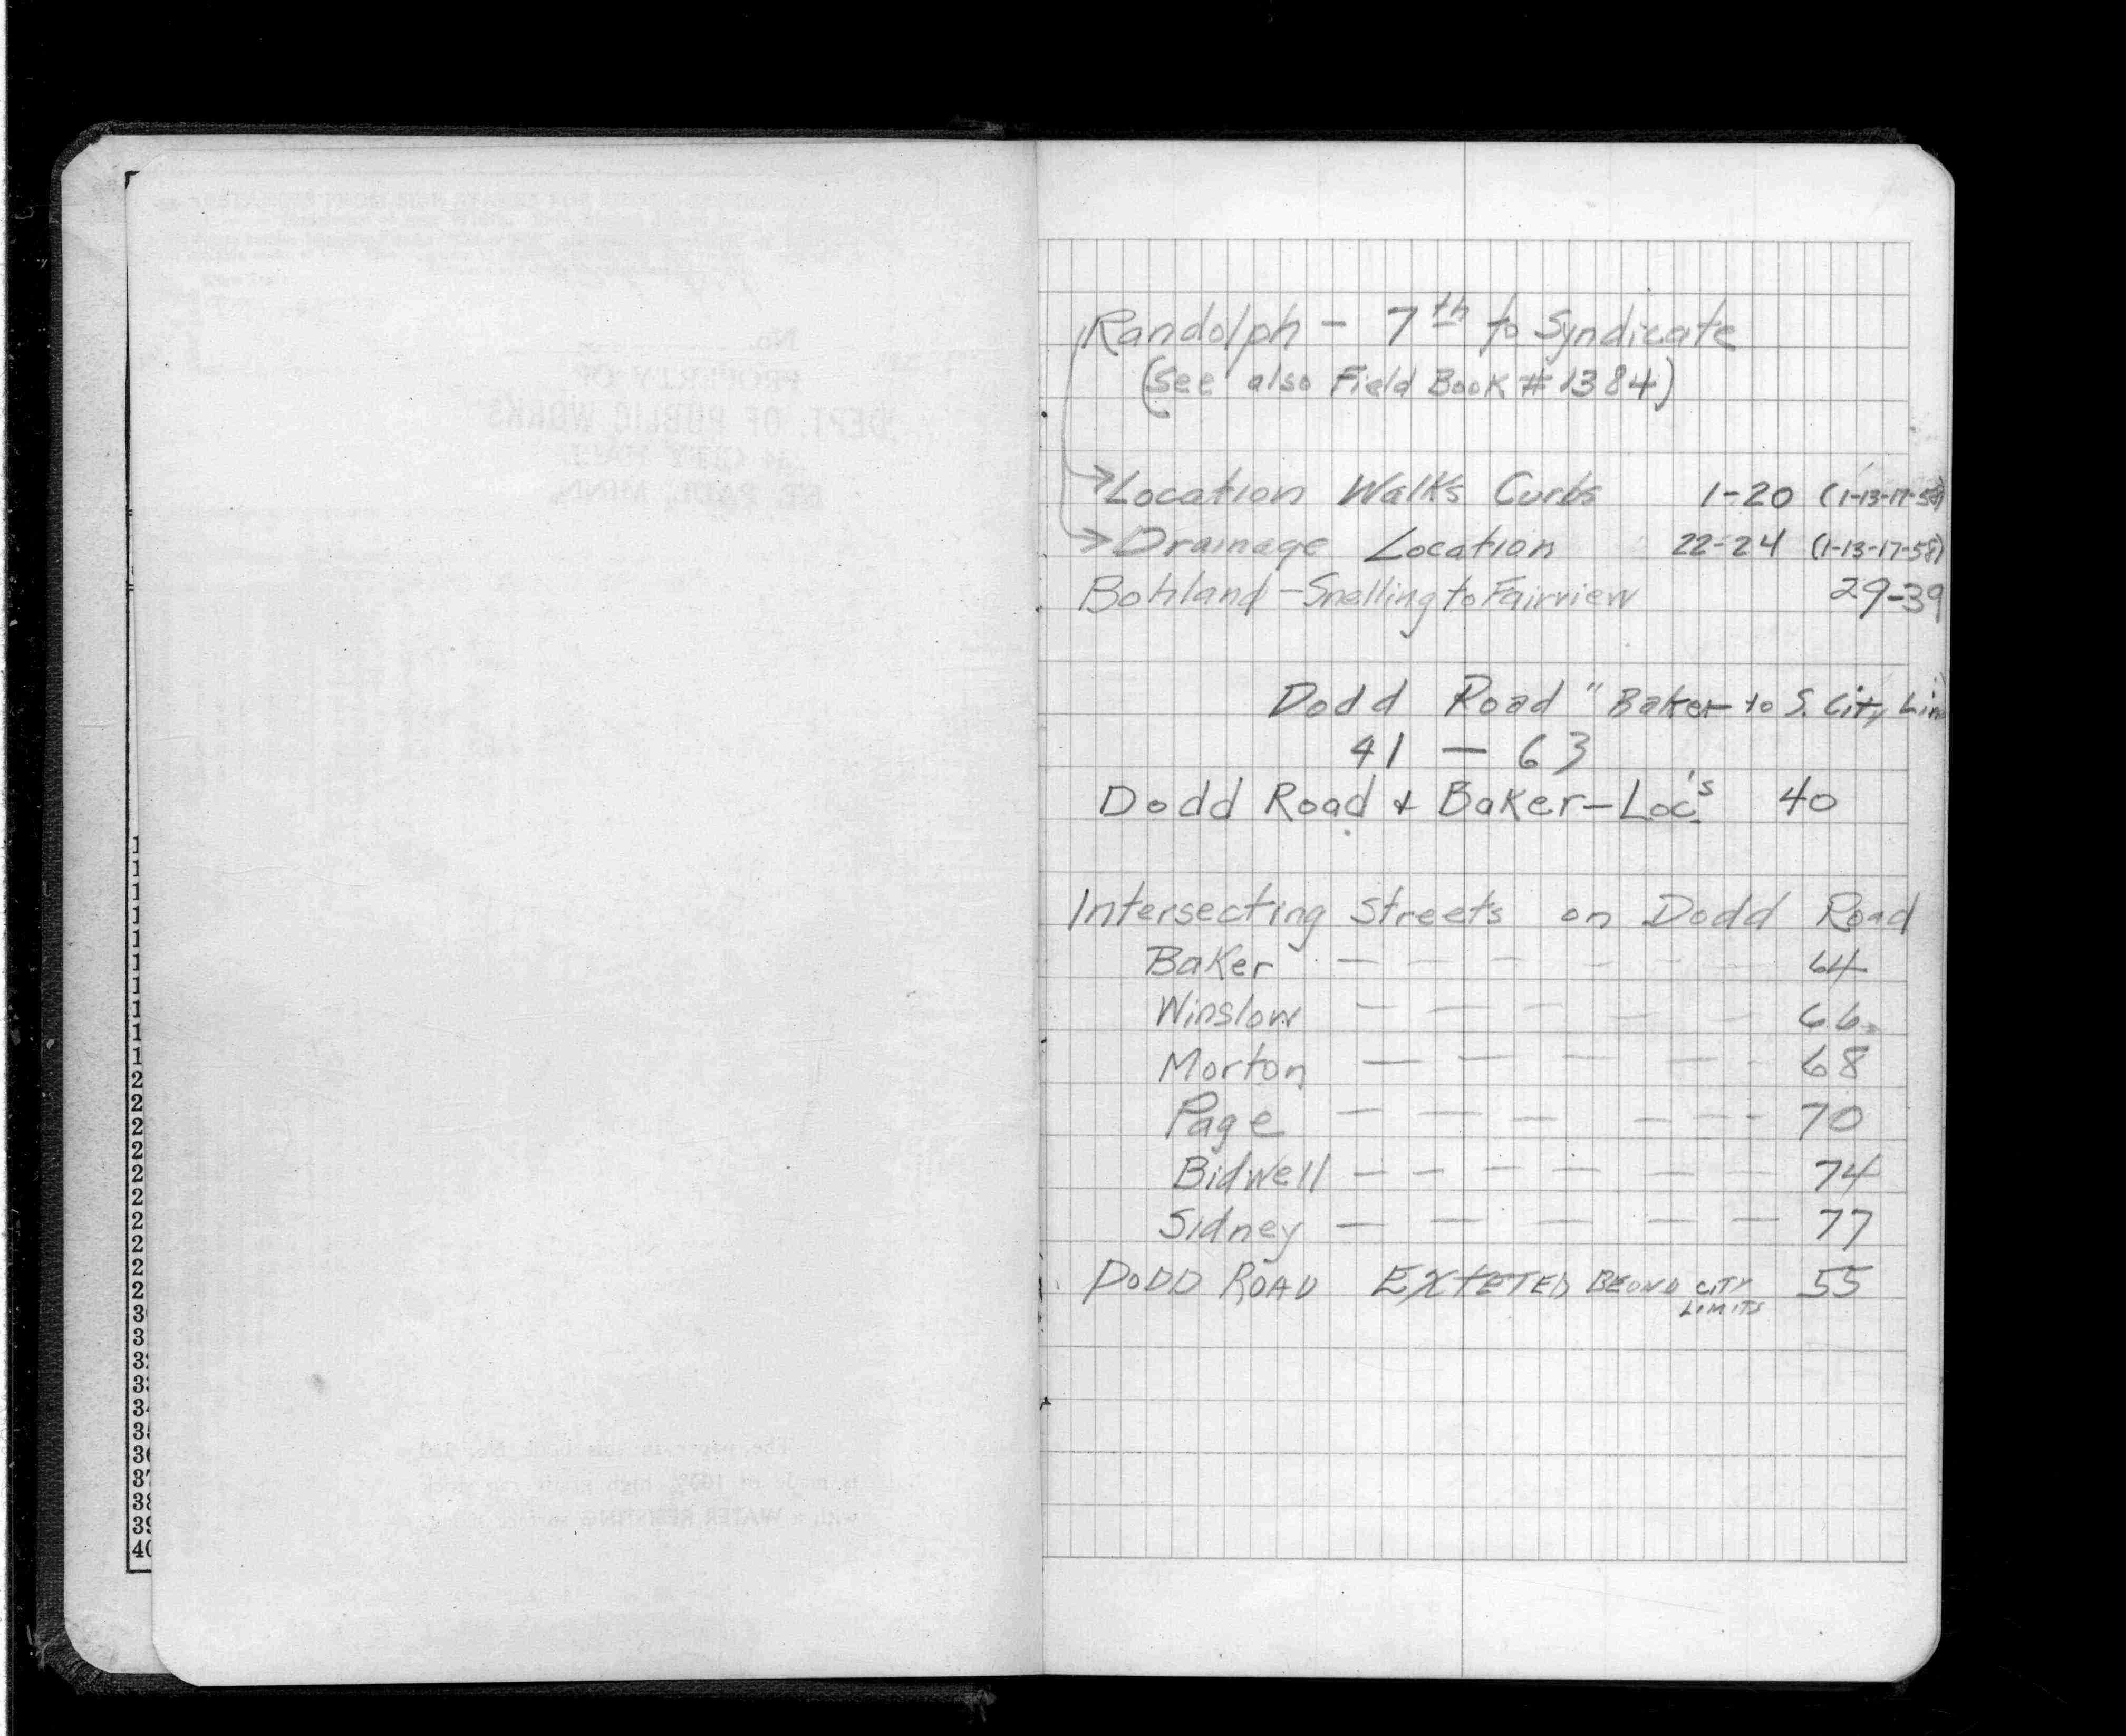 Randolph - 7th to Syndicate
(See also Field Book # 1384)
Location Walks Curbs 1-20 (1-13-17-58)
Drainage Location 22-24 (1-13-17-58)
Bohland - Snelling to Fairview 29-39
Dodd Road " Baker to S. City Lim
41 — 63
Dodd Road + Baker - Loc's 40
Intersecting Streets on Dodd Road
Baker — — — — — — 64
Winslow — — — — — 66
Morton — — — — - 68
Page — — — — - - 70
Bidwell — — — — — — 74
Sidney — — — — — 77
DODD ROAD EXTETED BEOND CITY LIMITS 55
No.
PROPERTY OF
DEPT. OF PUBLIC WORKS
CITY HALL
ST. PAUL, MINN.